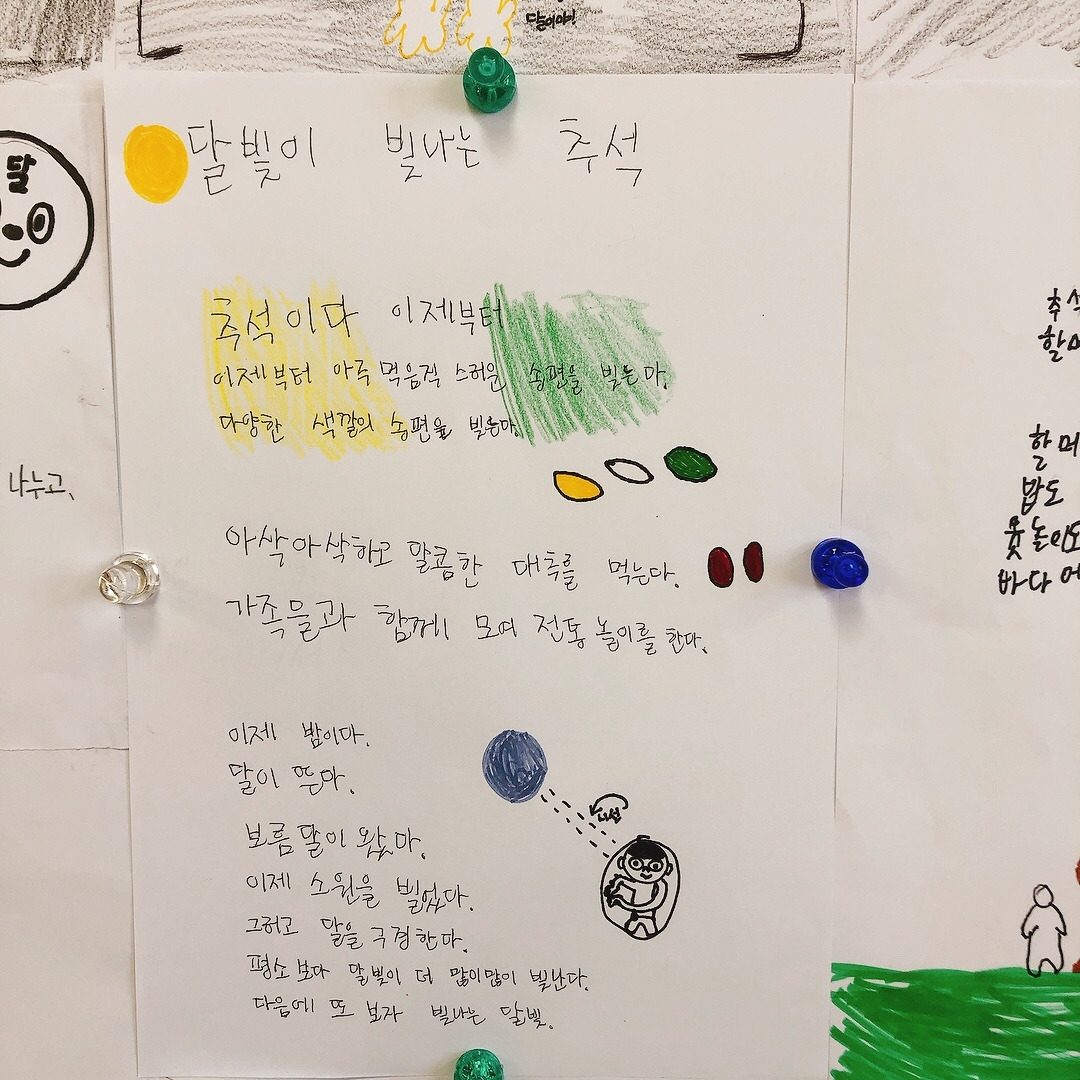 달이야!
달
달빛이 빛나는 추석
추석이다 이제부터
이제부터 아주 먹음직 스러운 송편을 빚는다.
다양한 색깔의 송편을 빚는다.
아삭아삭하고 달콤한 대추를 먹는다.
가족들과 함께 모여 전통놀이를 한다.
이제 밤이다.
달이 뜬다.
보름달이 왔다.
이제 소원을 빌었다.
그러고 달을 구경한다.
평소보다 달빛이 더 많이많이 빛난다.
다음에 또 보자 빛나는 달빛.
나누고,
추석
할머
할메
밥도
윷놀이도
바다에